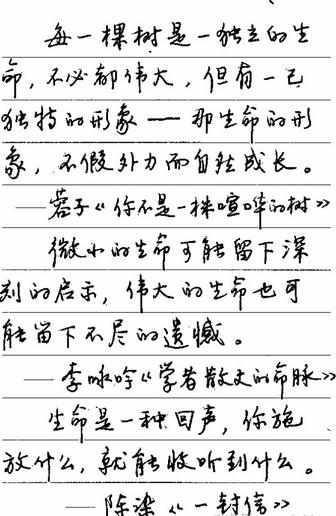 每一棵树是一独立的生
命，不必都伟大，但有一己
独特的形象——那生命的形
象，不假外力而自然成长。
——蓉子《你不是一株喧哗的树》
微小的生命可能留下深
刻的启示，伟大的生命也可
能留下不尽的遗憾。
——李咏吟《学者散文的命脉》
生命是一种回声，你施
放什么，就能收听到什么。
——陈染《一封信》